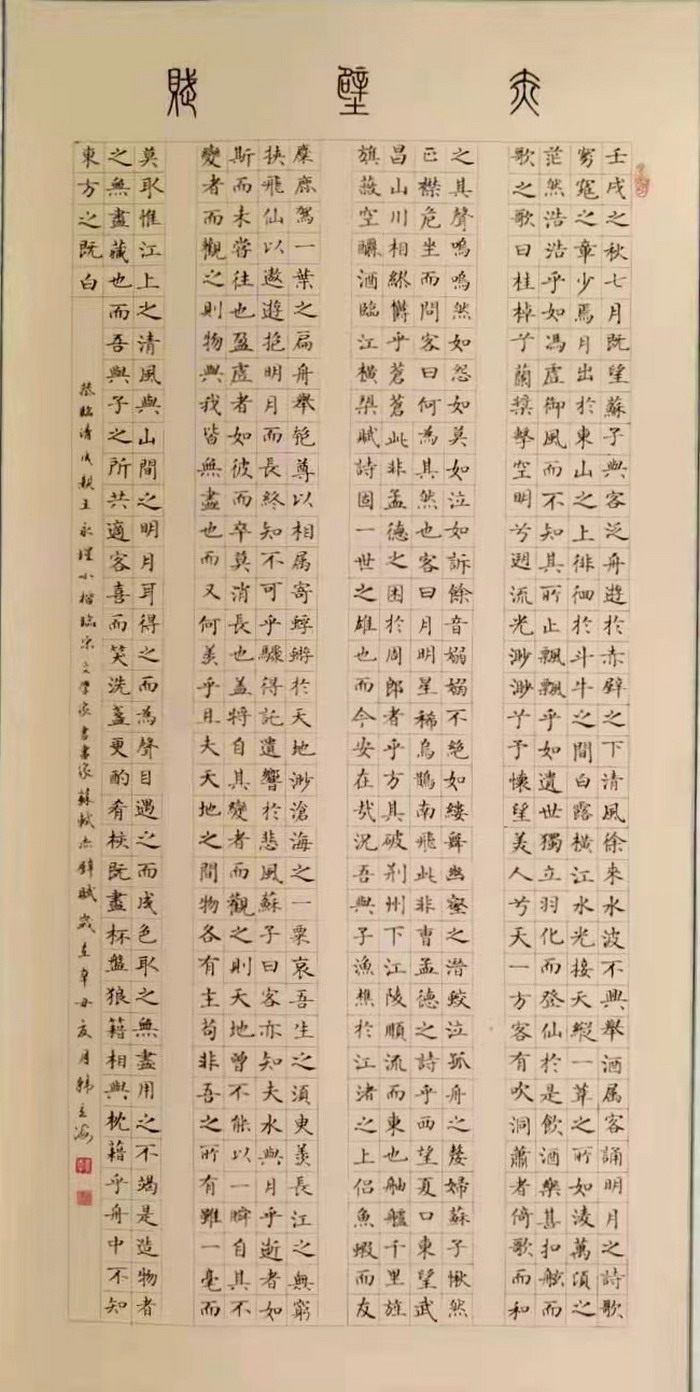 赤壁賦
壬戌之秋七月既望蘇子與客泛舟遊於赤壁之下清風徐來水波不興舉酒属客誦明月之詩歌
窈窕之章少焉月出於東山之上徘徊於斗牛之間白露橫江水光接天縱一葦之所如淩萬頃之
茫然浩浩乎如馮虛御風而不知其所止飄飄乎如遺世獨立羽化而登仙於是飲酒樂甚扣舷而
歌之歌曰桂棹兮蘭槳擊空明兮遡流光渺渺兮予懷望美人兮天一方客有吹洞蕭者倚歌而和
之其聲嗚嗚然如怨如慕如泣如訴餘音嫋嫋不絕如縷舞幽壑之潛蛟泣孤舟之嫠婦蘇子愀然
正襟危坐而問客曰何為其然也客曰月明星稀烏鵲南飛此非曹孟德之詩乎西望夏口東望武
昌山川相繆欝乎蒼蒼此非孟德之困於周郎者乎方其破荆州下江陵順流而東也舳艫千里旌
旗蔽空釃酒臨江橫槊賦詩固一世之雄也而今安在哉況吾與子漁樵於江渚之上侶魚蝦而友
麋鹿駕一葉之扁舟舉匏尊以相属寄蜉蝣於天地渺滄海之一粟哀吾生之須臾羨長江之無窮
挾飛仙以遨遊抱明月而長終知不可乎驟得託遺響於悲風蘇子曰客亦知夫水與月乎逝者如
斯而未嘗往也盈虛者如彼而卒莫消長也蓋將自其變者而觀之則天地曾不能以一瞬自其不
變者而觀之則物與我皆無盡也而又何羨乎且夫天地之間物各有主苟非吾之所有雖一毫而
莫取惟江上之清風與山間之明月耳得之而為聲目遇之而成色取之無盡用之不竭是造物者
之無盡藏也而吾與子之所共適客喜而笑洗盞更酌肴核既盡杯盤狼籍相與枕藉乎舟中不知
東方之既白
恭臨清成親王永瑆小楷臨宋文學家書畫家蘇軾赤壁賦歲在辛丑夏月韓立海